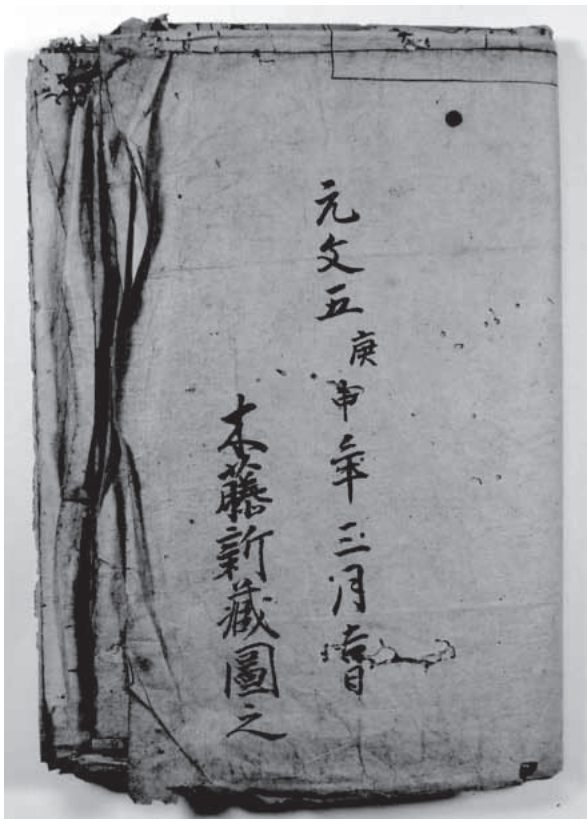 元文五庚申年三月吉日
木藤新蔵圖之